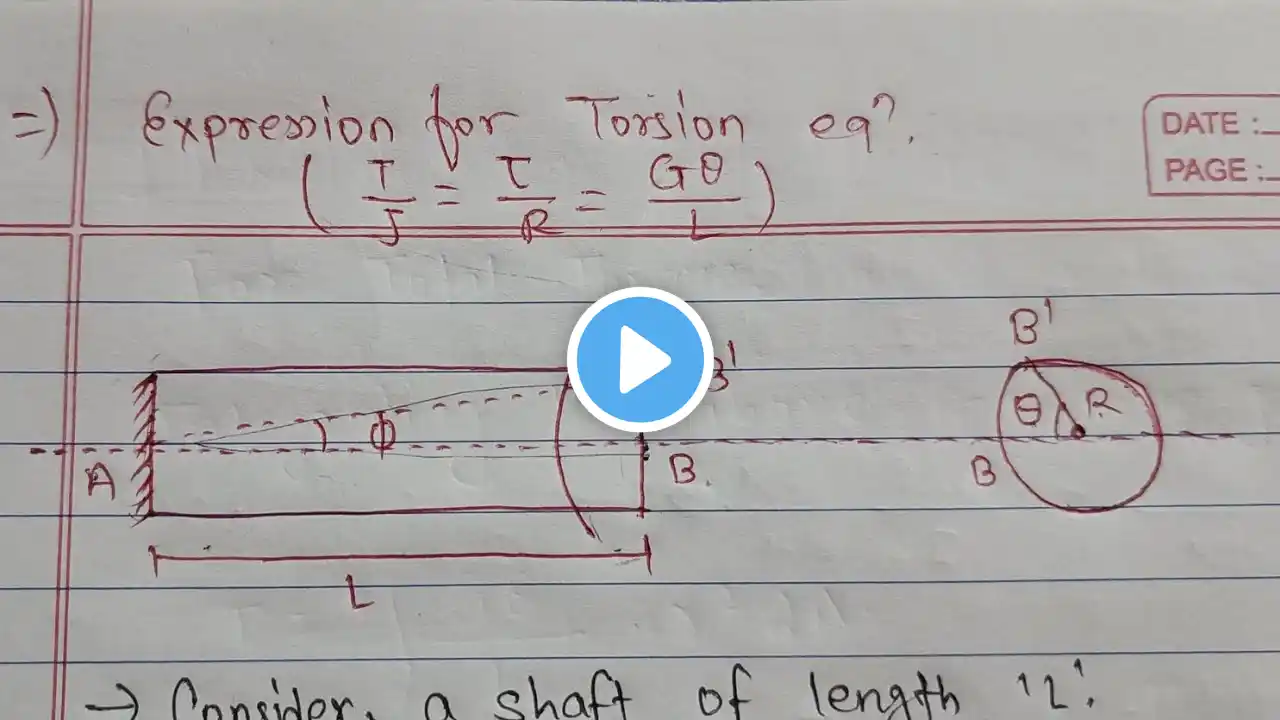 =) Expression for Torsion eqⁿ.
( T/J = τ/R = Gθ/L )
DATE :
PAGE :
B'
B'
θ R
ϕ
A
B.
B
L
→ Consider, a shaft of length 'L'.